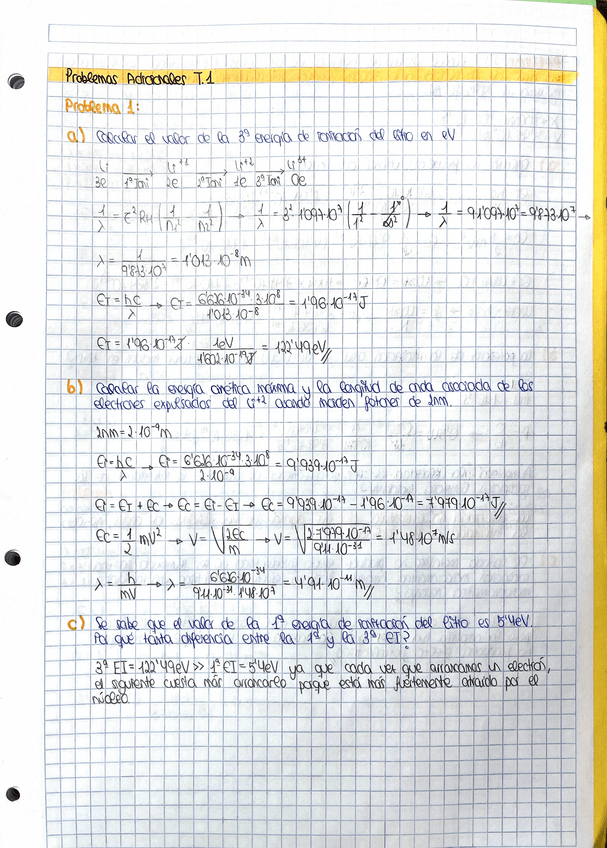 Problemas Adicionales T.1
Problema 1:
a) Calcular el valor de la 3ª energía de ionización del litio en eV
Li → Li⁺¹ → Li⁺² → Li³⁺
3e 1ª Ioni 2e 2ª Ioni 1e 3ª Ioni 0e
1/λ = Z² RH (1/n₁² - 1/n₂²) → 1/λ = 3² · 1'097·10⁷ (1/1² - 1/∞²)⁰ → 1/λ = 9·1'097·10⁷ = 9'873·10⁷ →
λ = 1/9'873·10⁷ = 1'013·10⁻⁸ m
EI = hc/λ → EI = 6'626·10⁻³⁴ · 3·10⁸ / 1'013·10⁻⁸ = 1'96·10⁻¹⁷ J
EI = 1'96·10⁻¹⁷ J · 1eV / 1'602·10⁻¹⁹ J = 122'49 eV //
b) Calcular la energía cinética máxima y la longitud de onda asociada de los
electrones expulsados del Li⁺² cuando inciden fotones de 2nm.
2nm = 2·10⁻⁹ m
Ei = hc/λ → Ei = 6'626·10⁻³⁴ · 3·10⁸ / 2·10⁻⁹ = 9'939·10⁻¹⁷ J
Ei = EI + Ec → Ec = Ei - EI → Ec = 9'939·10⁻¹⁷ - 1'96·10⁻¹⁷ = 7'979·10⁻¹⁷ J //
Ec = 1/2 mv² → V = √(2Ec/m) → V = √(2·7'979·10⁻¹⁷ / 9'11·10⁻³¹) = 1'48·10⁷ m/s
λ = h/mv → λ = 6'626·10⁻³⁴ / 9'11·10⁻³¹ · 1'48·10⁷ = 4'91·10⁻¹¹ m //
c) Se sabe que el valor de la 1ª energía de ionización del litio es 5'4eV.
Por qué tanta diferencia entre la 1ª y la 3ª EI?
3ª EI = 122'49 eV >> 1ª EI = 5'4eV ya que cada vez que arrancamos un electrón,
el siguiente cuesta más arrancarlo porque está más fuertemente atraído por el
núcleo.